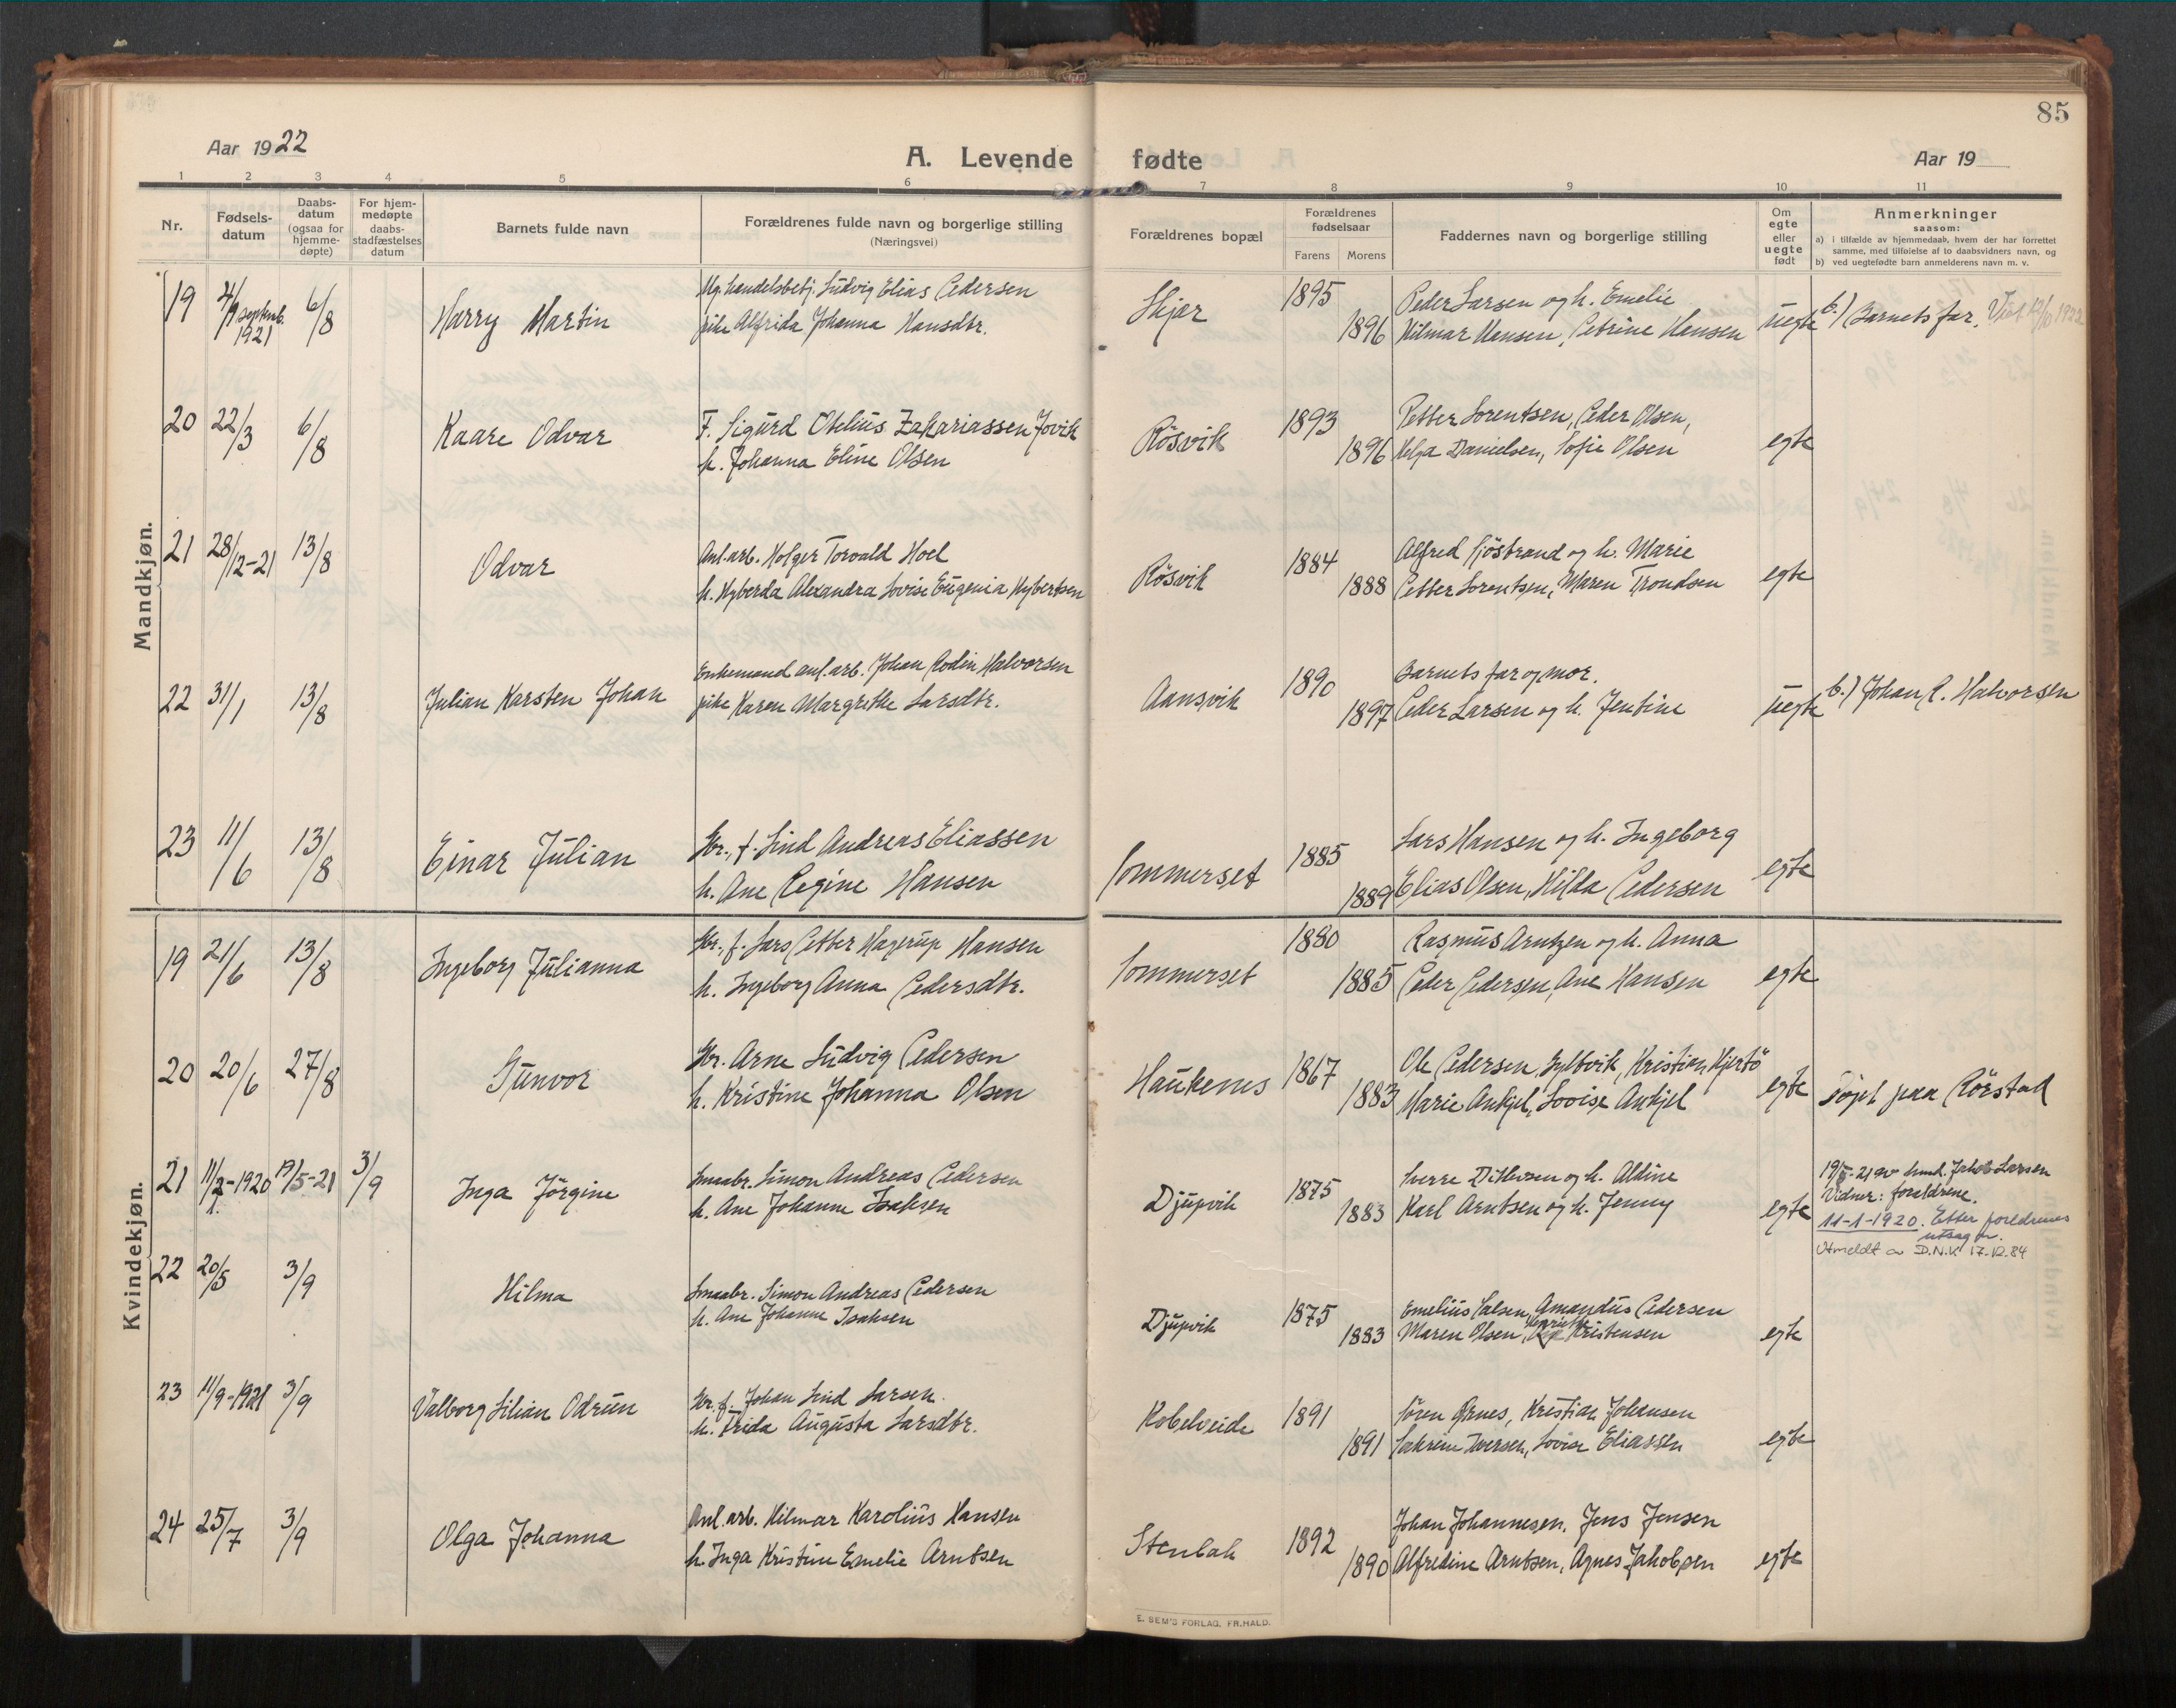 85
Aar 1922
A. Levende fødte
Aar 19
1 2 3 4 5 6 7 8 9 10 11
Nr.
Fødsels-
datum
Daabs-
datum
(ogsaa for
hjemme-
døpte)
For hjem-
medøpte
daabs-
stadfæstelses
datum
Barnets fulde navn
Forældrenes fulde navn og borgerlige stilling
(Næringsvei)
Forældrenes bopæl
Forældrenes
fødselsaar
Farens Morens
Faddernes navn og borgerlige stilling
Om
egte
eller
uegte
født
Anmerkninger
saasom:
a) i tilfælde av hjemmedaab, hvem der har forrettet
samme, med tilføielse af to daabsvidners navn, og
b) ved uegtefødte barn anmelderens navn m. v.
Mandkjøn.
19 4/9 septemb. 1921 6/8 Harry Martin
Ug. handelsbetj. Ludvig Elias Pedersen
pike Alfrida Johanna Hansdtr.
1895 Peder Larsen og h. Emelie
1896 Hilmar Hansen, Petrine Hansen
uegte b.) Barnets far.
20 22/3 6/8 Kaare Odvar
F. Sigurd Otelius Zakariassen Jovik
h. Johanna Eline Olsen
Røsvik
1893 Petter Lorentsen, Peder Olsen,
1896 Helga Danielsen, Sofie Olsen
egte
21 28/12-21 13/8 Odvar
Anl. arb. Holger Torvald Hoel
h. Hyberda Alexandra Lovise Eugenia Hybertsen
Røsvik
1884 Alfred Sjøstrand og h. Marie
1888 Petter Lorentsen, Maren Trondsen
egte
22 31/1 13/8 Julian Karsten Johan
Enkemand anl. arb. Johan Rodin Halvorsen
pike Karen Margrethe Larsdtr.
Aansvik
1890 Barnets far og mor.
1897 Peder Larsen og h. Jentine
uegte b.) Johan R. Halvorsen
23 11/6 13/8 Einar Julian
Gbr., f. Lind Andreas Eliassen
h. Ane Regine Hansen
Sommerset
1885 Lars Hansen og h. Ingeborg
1889 Elias Olsen, Hilda Pedersen
egte
Kvindekjøn.
19 21/6 13/8 Ingeborg Julianna
Gbr. f. Lars Petter Hagerup Hansen
h. Ingeborg Anna Pedersdtr.
Sommerset
1880 Rasmus Arntzen og h. Anna
1885 Peder Pedersen, Ane Hansen
egte
20 20/6 27/8 Gunvor
Gbr. Arne Ludvig Pedersen
h. Kristine Johanna Olsen
Haukenes
1867 Ole Pedersen, Gyltvik, Kristian Hjertö
1883 Marie Ankjel, Lovise Ankjel
egte Døpt paa Rörstad
21 11/2-1920 19/5-21 3/9 Inga Jörgine
Smaabr. Simon Andreas Pedersen
h. Ane Johanne Isaksen
Djupvik
1875 Sverre Ditlevsen og h. Aldine
1883 Karl Arntsen og h. Jenny
egte
19/5-21 av Jakob Larsen
Vidner: forældrene.
11-1-1920. Etter foreldrenes
utsagn.
Utmeldt av D.N.K 17.12.84
22 20/5 3/9 Hilma
Smaabr. Simon Andreas Pedersen
h. Ane Johanne Isaksen
Djupvik
1875 Emelius Olsen, Amandus Pedersen
1883 Maren Olsen, Henriette Kristensen
egte
23 11/9-1921 3/9 Valborg Lilian Odrun
Gbr. f. Johan Lind Larsen.
h. Frida Augusta Larsdtr.
Kobelveide
1891 Søren Ornes, Kristian Johansen
1891 Iversen, Lovise Eliassen
egte
24 25/7 3/9 Olga Johanna
Anl. arb. Hilmar Karolius Hansen
h. Inga Kristine Emelie Arntsen
Stenbak
1892 Johan Johannesen, Jens Jensen
1890 Alfredine Arntsen, Agnes Jakobsen
egte
E. SEM'S FORLAG, FR.HALD.